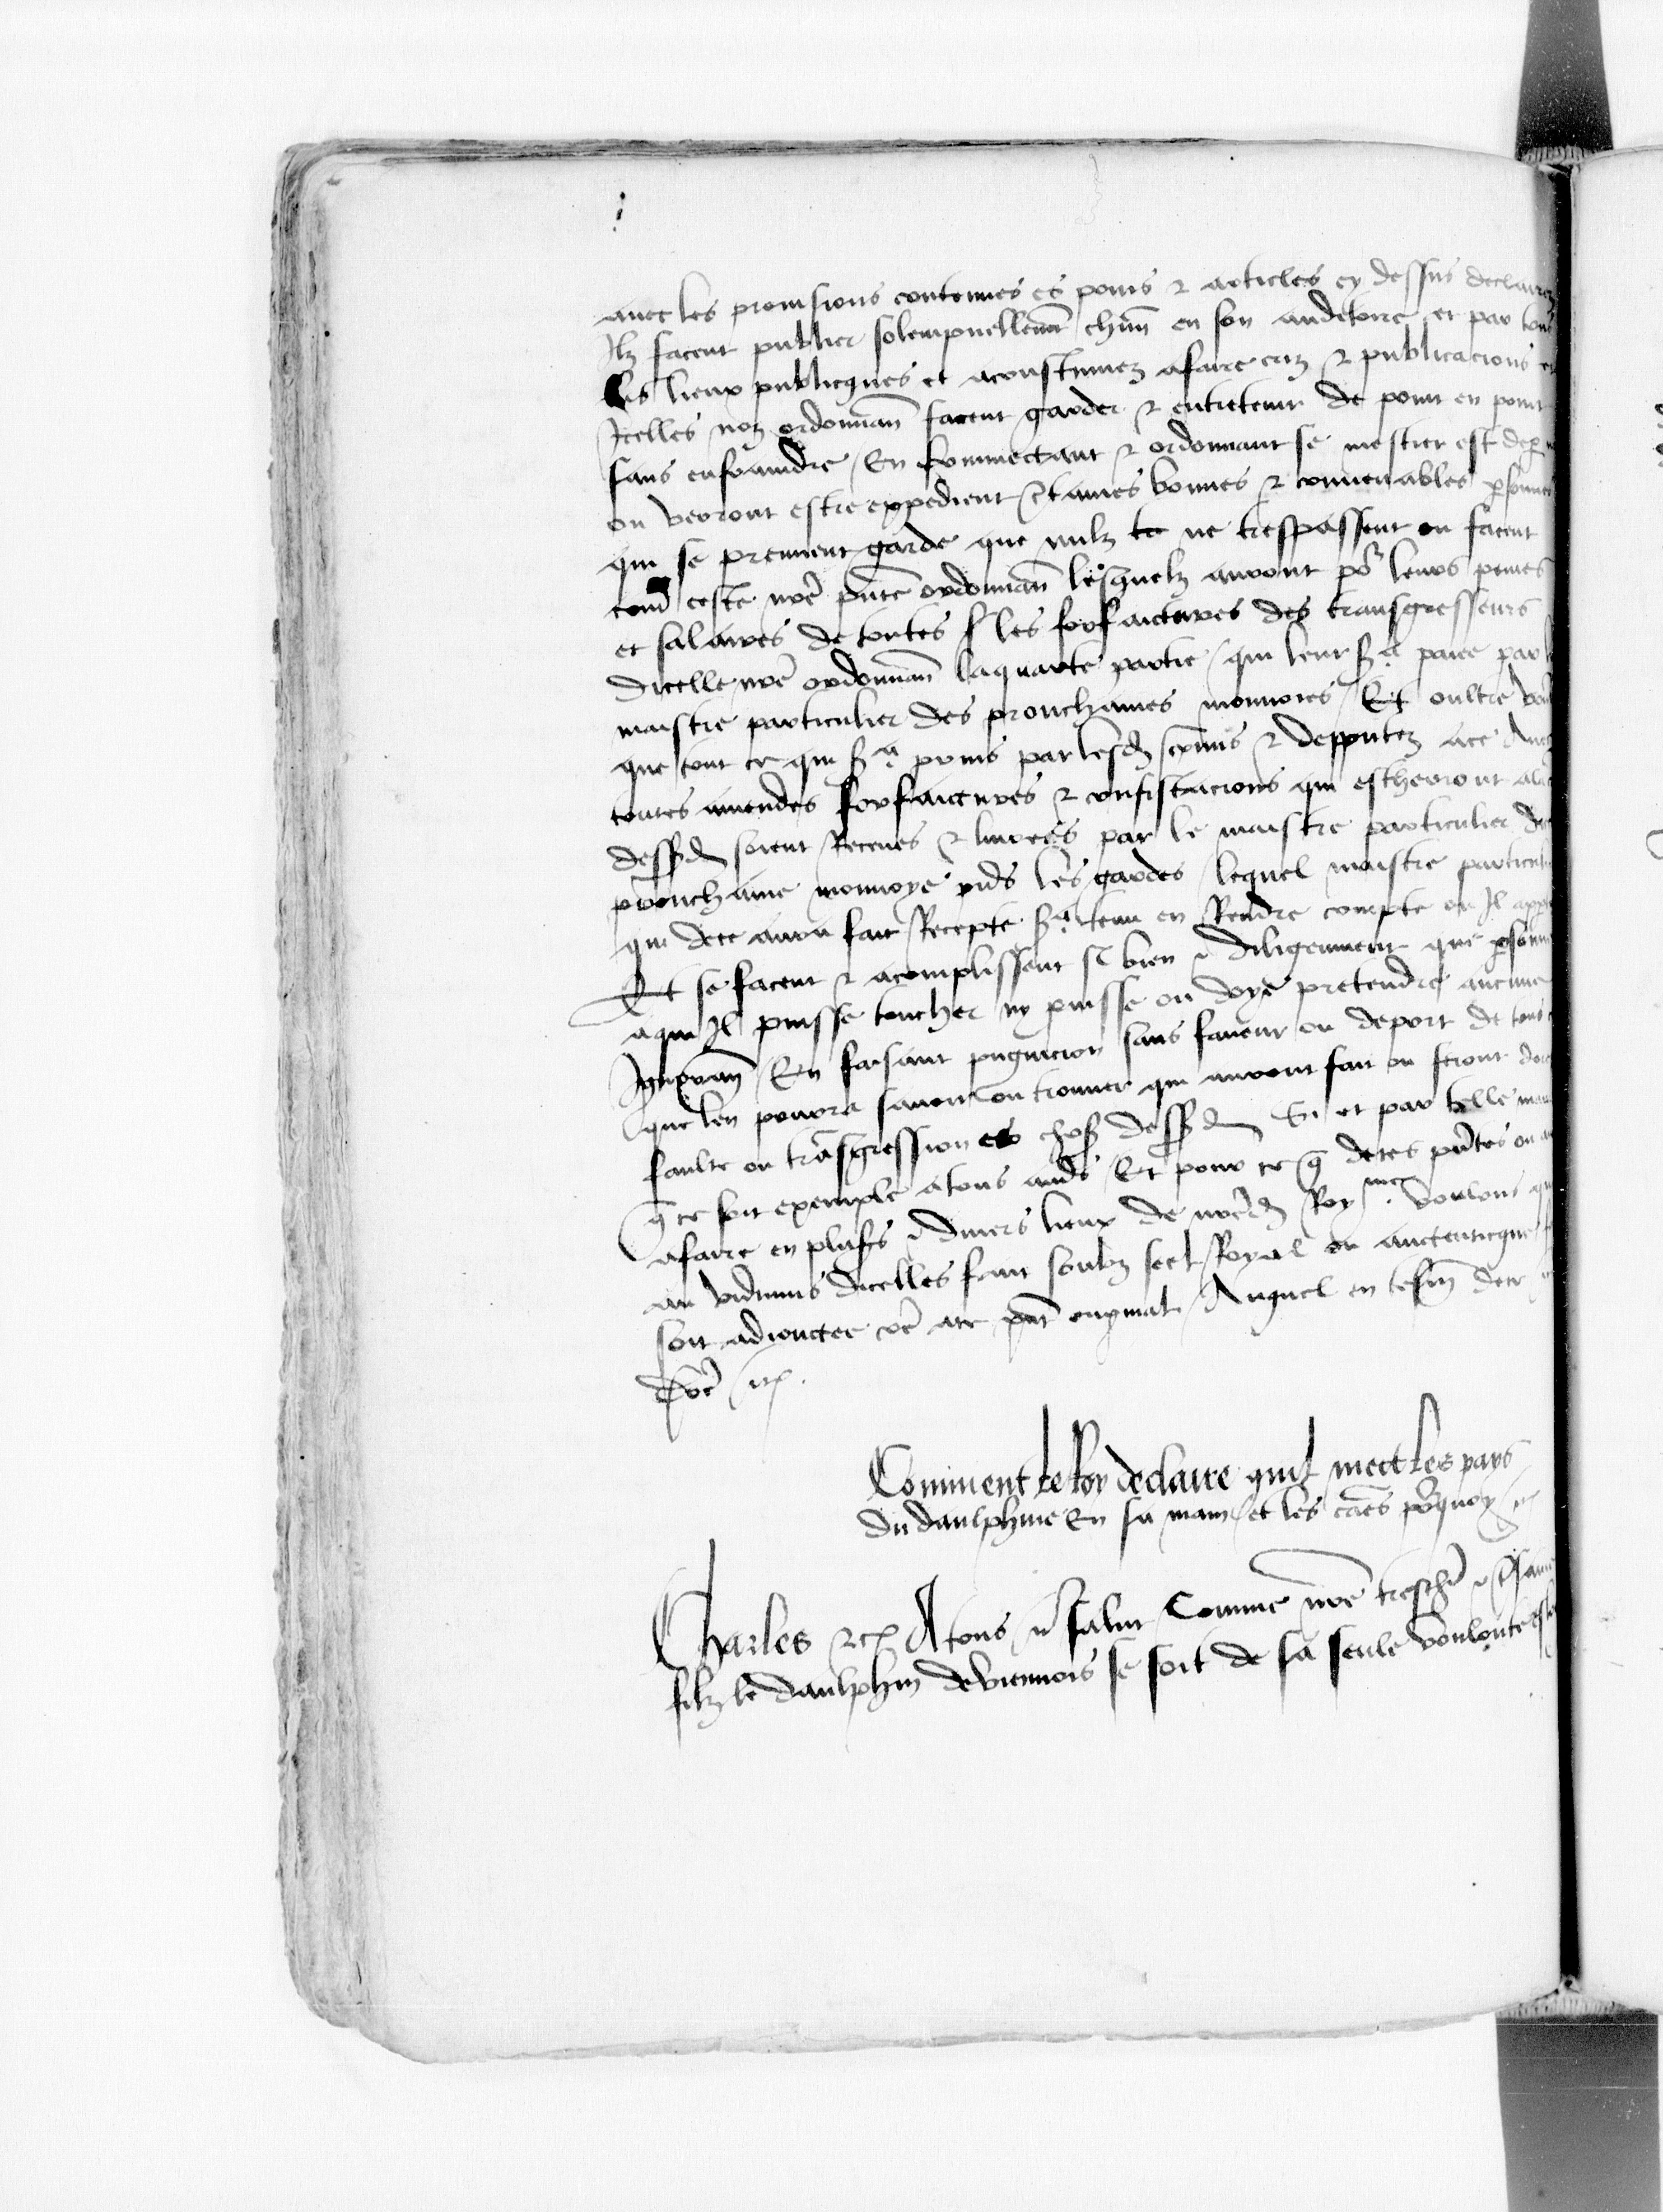 avec les provisions contenues es poins & articles cy dessus declairez
Ilz facent publier solempnellemēt chūn en son auditoire et par tous
les lieux publicques et acoustumez afaire criz & publicacions et
Icelles noz ordonnan̄ facent garder & entretenir de point en point
sans enfraindre / En commectant & ordonnant se mestier est
ou verront estre expedient c̄taines bonnes & convenables p̄sonnes
qui se prennent garde que nulz ne trespassent ou facent
cont̄ ceste nr̄e pn̄te ordonnan̄ lesquelz auront por̄ leurs peines
et salaires de toutes les forfaictures des transgresseurs
dicelle nr̄e ordonnan̄ la quarte partie / qui leur s̄a paiee par le
maistre particulier des prouchaines monnoies / Et oultre voul
que tout ce qui s̄a prins par lesd̄ com̄is & depputez ace Avec
toutes amendes forfaictures & confiscacions qui escherront
dessusd̄ soient Receues & livrees par le maistre particulier de
prouchaine monnoye p̄ns les gardes / lequel maistre particulier
qui dece aura fait Recepte s̄a tenu en Rendre compte ou Il app
Et se facent & acomplissent si bien & diligemment que p̄sonne
aqui Il puisse toucher ny puisse ou doye pretendre aucune
Ignoran̄ / En faisant pugnicion sans faveur ou deport de tous
que len pourra savoir ou trouver qui auront fait ou feront
faulte ou trāsgression es chos̄ dessusd̄ Si et par telle man
q̄ ce soit exemple atous aut̄s / Et pour ce q̄ deces pn̄tes on
afaire en plus̄s & divers lieux de nr̄ed̄ Royme voulons
au vidimus dicelles fait soubz seel Royal ou auctenticque
soit adioustee c̄ ace pn̄t original / Auquel en tesm̄ dece

Comment le Roy declaire quil mect les pays
du daulphine En sa main / et les caūs por̄quoy

Charles &c Atous &c salut Comme nr̄e treschr̄ & tresame
filz le daulphin de viennois se soit de sa seule voulonte